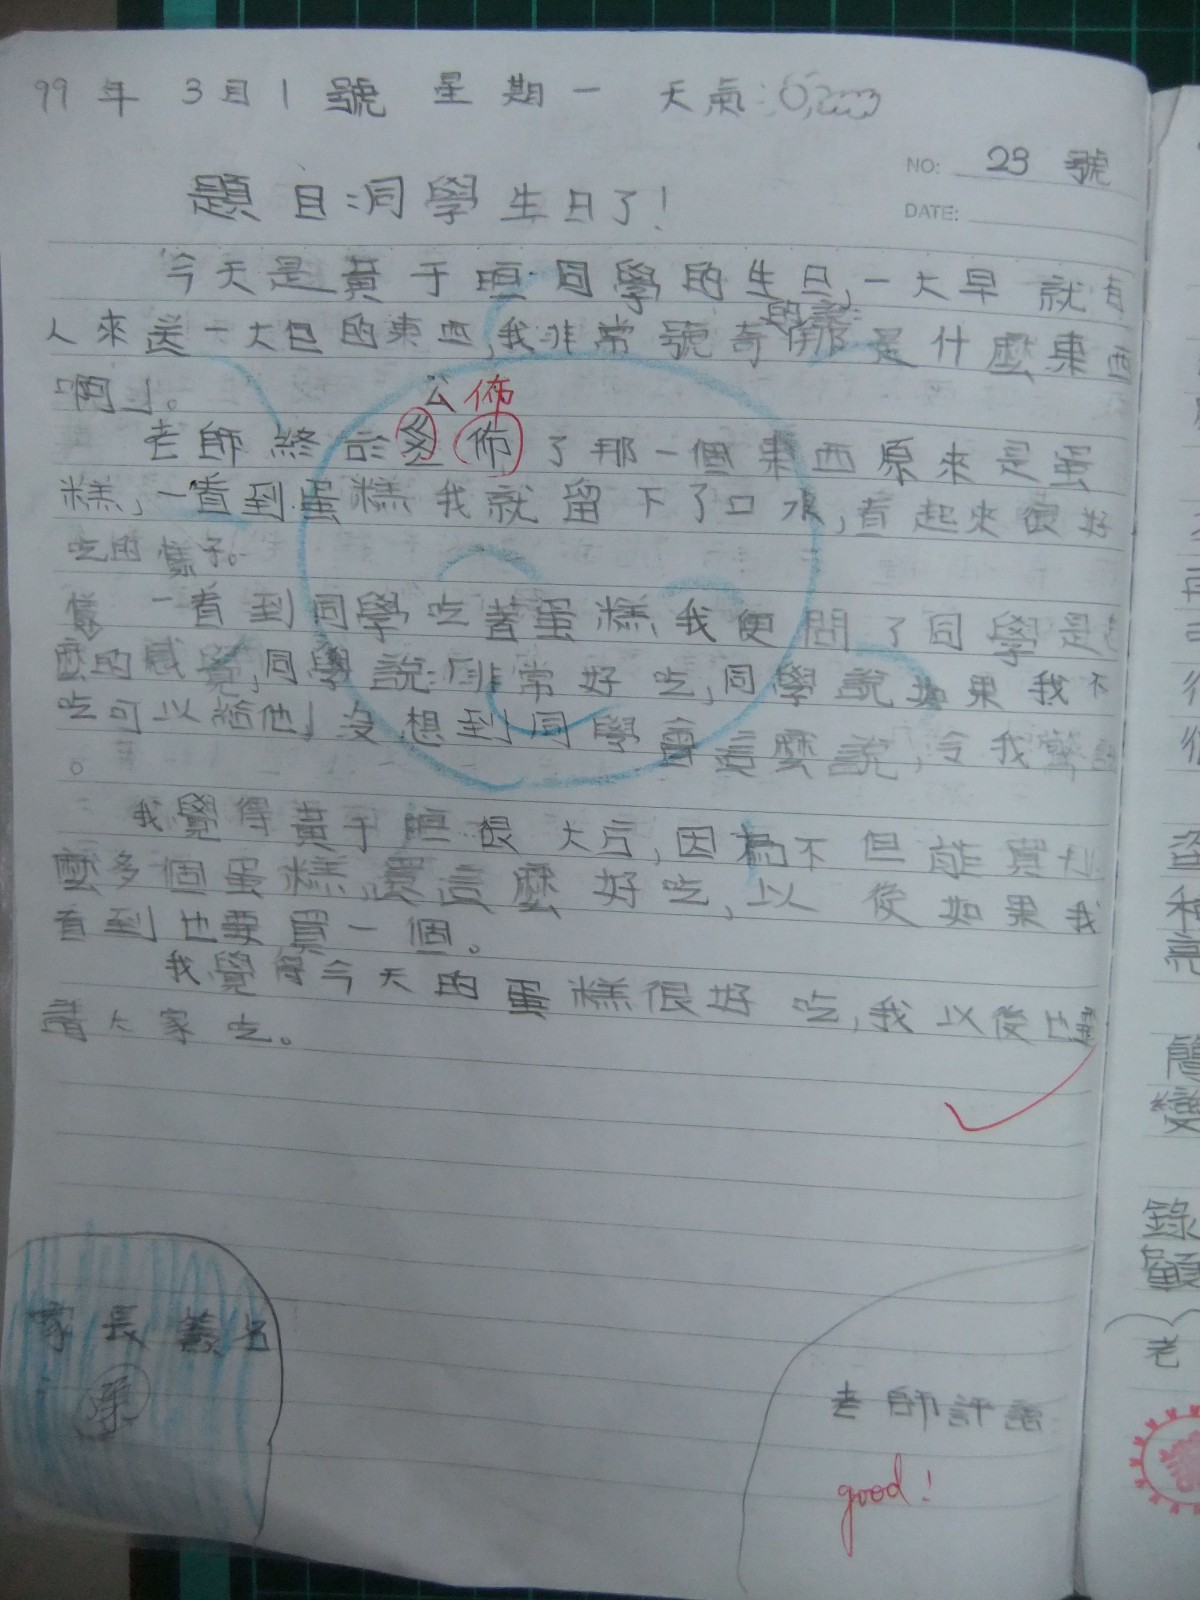 99年 3月1號 星期一 天氣:
NO: 29 號
題目:同學生日了!
DATE:
今天是黃于晅同學的生日,一大早就有
人來送一大包的東西,我非常號奇的說:「那是什麼東西
啊」。
公佈
老師終於 佈了那一個東西原來是蛋
糕,一看到蛋糕我就留下了口水,看起來很好
吃的樣子。
一看到同學吃著蛋糕,我便問了同學是怎
麼的感覺,同學說:「非常好吃,同學說如果我不
吃可以給他」沒想到同學會這麼說,令我驚訝
。
我覺得黃于晅很大方,因為不但能買
麼多個蛋糕,還這麼好吃,以後如果我
看到也要買一個。
我覺得今天的蛋糕很好吃,我以後也要
請大家吃。
家長 名
老師評語
good!
老